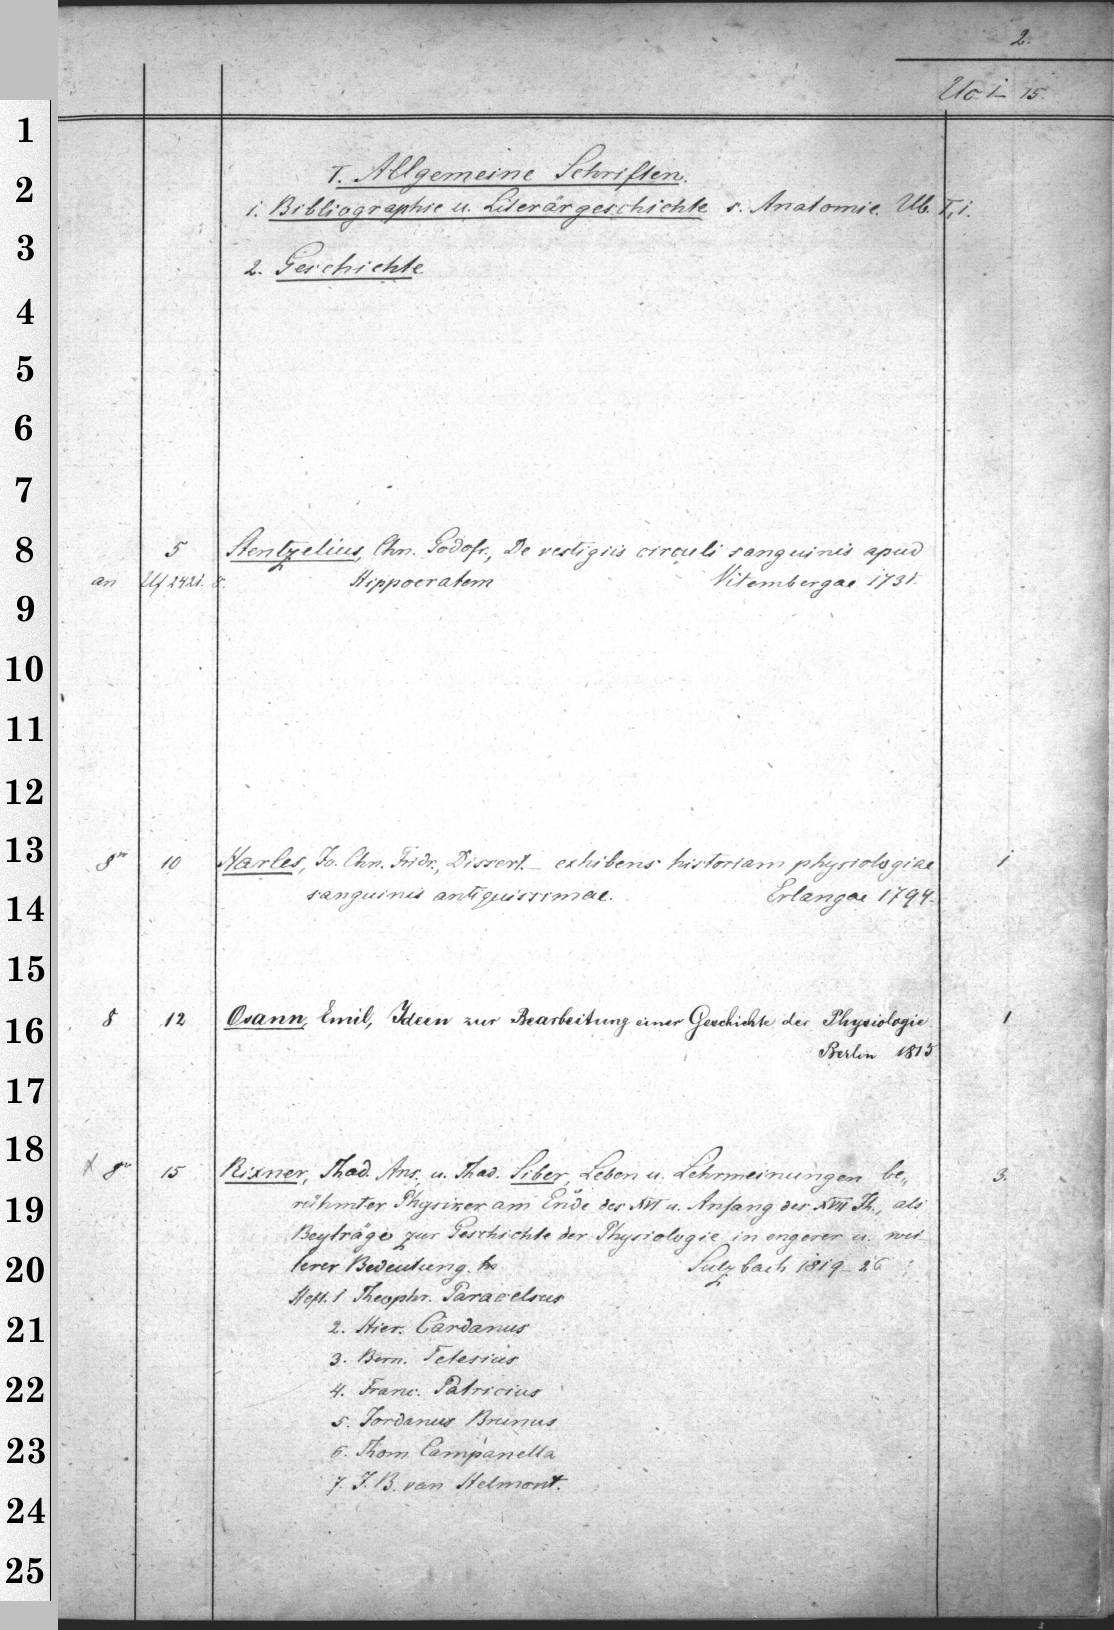 2.
Uo 1–15.
1
2
3
4
5
6
7
8
9
10
11
12
13
14
15
16
17
18
19
20
21
22
23
24
25
I. Allgemeine Schriften.
1. Bibliographie u. Literärgeschichte s. Anatomie. Ub. I, 1.
2. Geschichte
5 Stentzelius, Chn. Godofr., De vestigiis circuli sanguinis apud
an Uf 2421. 8. Hippocratem Vitembergae 1731.
8° 10 Harles, Jo. Chn. Fridr., Dissert. – exhibens historiam physiologiae 1
sanguinis antiquissimae. Erlangae 1794.
8 12 Osann, Emil, Ideen zur Bearbeitung einer Geschichte der Physiologie 1
Berlin 1815
X 8° 15 Rixner, Thad. Ans. u. Thad. Siber, Leben u. Lehrmeinungen be„ 3.
rühmter Physiker am Ende des XVI u. Anfang des XVII Jh., als
Beyträge zur Geschichte der Physiologie in engerer u. wei
terer Bedeutung. Sulzbach 1819–26
Heft. 1 Theophr. Paracelsus
2. Hier. Cardanus
3. Bern. Telesius
4. Franc. Patricius
5. Jordanus Brunus
6. Thom Campanella
7. J. B. van Helmont.